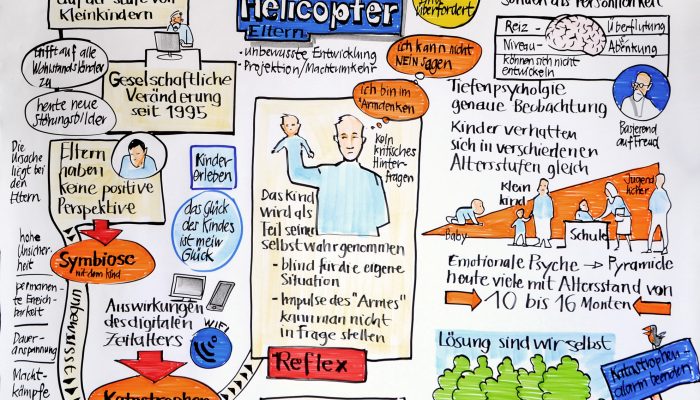 Kleinkindern
trifft auf alle
Wohlstandsländer
zu
heute neue
Störungsbilder
Gesellschaftliche
Veränderung
seit 1995
Die
Ursache
liegt bei
den
Eltern.
Eltern
haben
keine positive
Perspektive
Kinder
erleben
das Glück
des Kindes
ist mein
Glück
hohe
Unsicher-
heit
permanen-
te Erreich-
barkeit
Dauer-
anspannung
Macht-
kämpfe
Symbiose
mit dem Kind
unbewusst
Auswirkungen
des digitalen
Zeitalters
WiFi
Katastrophen
Helicopter
Eltern
- unbewusste Entwicklung
- Projektion/Machtumkehr
überfordert
ich kann nicht
NEIN sagen
ich bin im
"Armdenken
kein
kritisches
Hinter-
fragen
Das Kind
wird als
Teil seiner
selbst wahrgenommen
- blind für die eigene
Situation
- Impulse des "Armes"
kann man nicht
in Frage stellen
Reflex
Reiz - Überflutung
Niveau - Abenkung
können sich nicht
entwickeln
Tiefenpsycholgie
genaue Beobachtung
Basierend
auf Freud
Kinder verhatten
sich in verschiedenen
Altersstufen gleich
Baby
Klein
kind
Schule
Jugend
licher
Emotionale Psyche → Pyramide
heute viele mit Altersstand von
10 bis 16 Monten
Lösung sind wir selbst
Katastrophen-
alarm beenden